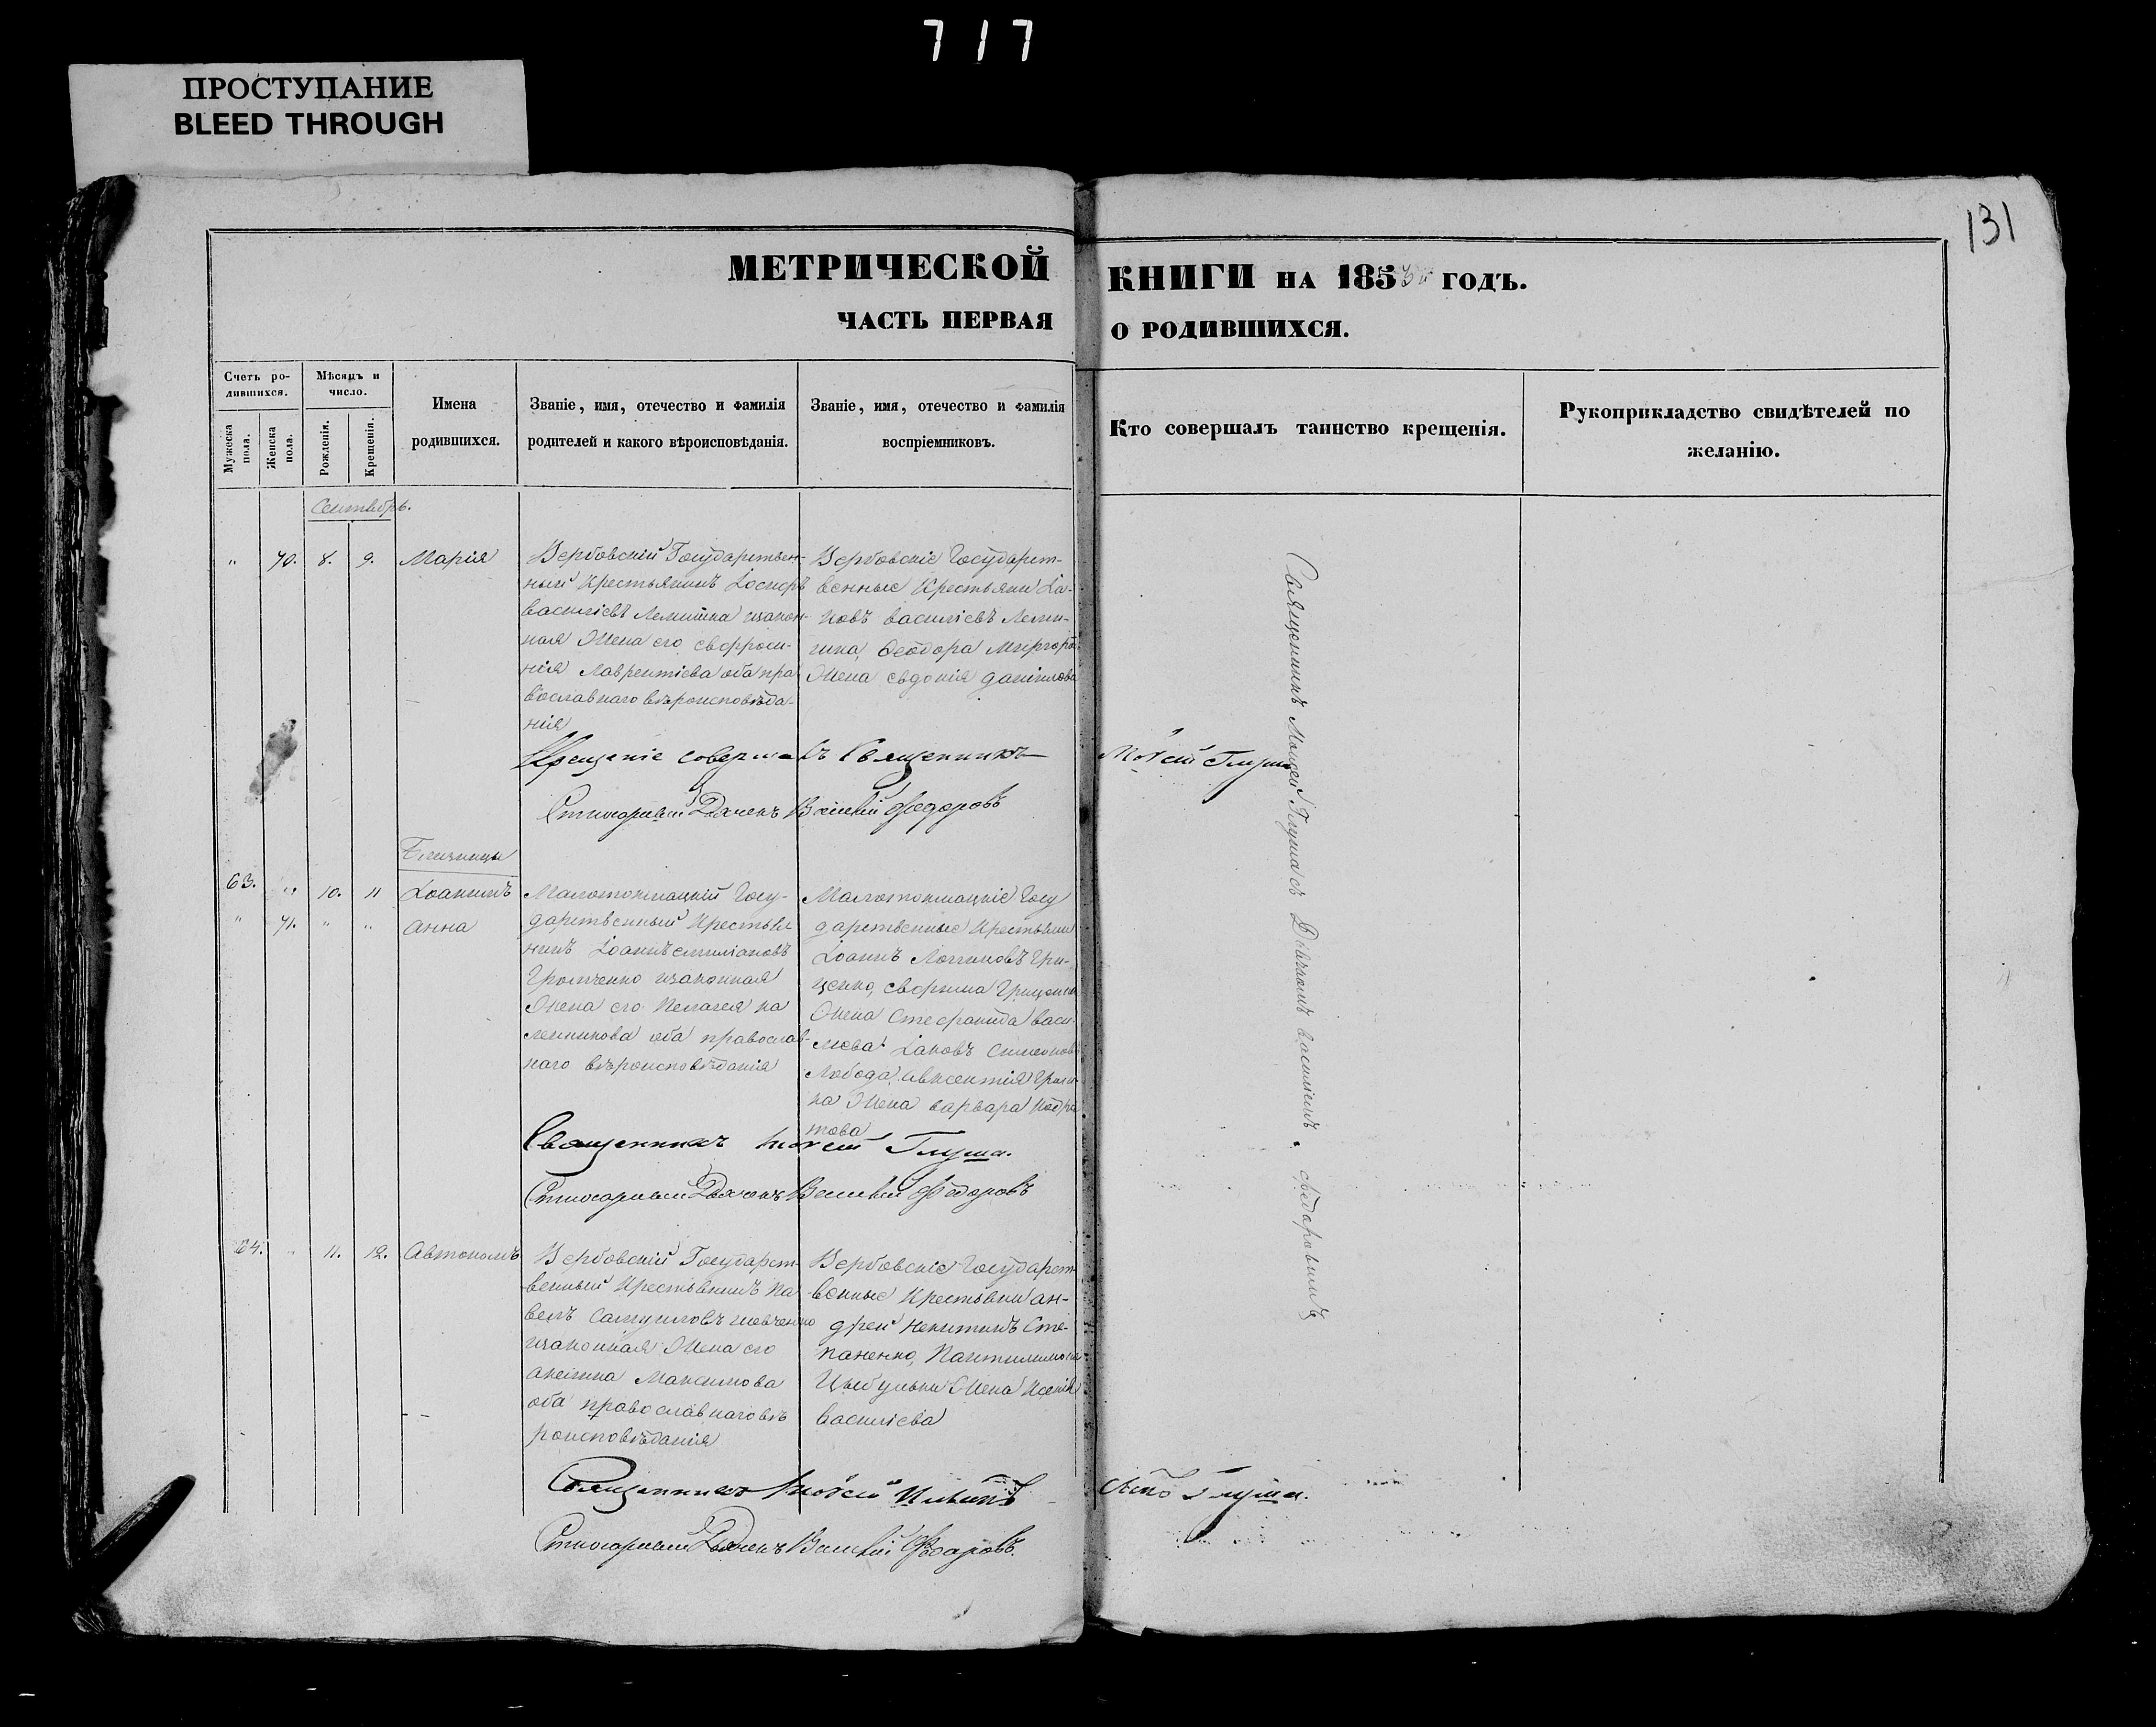 717
ПРОСТУПАНИЕ
BLEED THROUGH
131
МЕТРИЧЕСКОЙ КНИГИ НА 1853 ГОДЪ.
ЧАСТЬ ПЕРВАЯ О РОДИВШИХСЯ.
Счетъ родившихся.
Мужеска пола.
Женска пола.
Мѣсяцъ и число.
Рожденія.
Крещенія.
Имена родившихся.
Званіе, имя, отечество и фамилія родителей и какого вѣроисповѣданія.
Званіе, имя, отечество и фамилія воспріемниковъ.
Кто совершалъ таинство крещенія.
Рукоприкладство свидѣтелей по желанію.
Сентябрь.
" 70. 8. 9. Марія
Вербовскій Государствен-
ный Крестьянинъ
василіевъ изакон-
ная Жена его евфроси-
нія Лаврентіева оба пра
вославнаго вѣроисповѣда-
нія
Вербовскіе Государст-
венные Крестьяни Іа-
ковъ василіевъ Леми-
шка, Ѳеодора
Жена евдокія данилова
Крещеніе совершалъ Священникъ Моѵсей Глуша
Стихарный Дьячекъ Василій Федоровъ
Близнецы
63. " 10. 11 Іоакимъ
" 71. " " анна
Малотокмацкій Госу-
дарственный Крестья
нинъ Іоаннъ емиліановъ
изаконная
Жена его Пелагея ка
ленникова оба православ-
наго вѣроисповѣданія
Малотокмацкіе Госу
дарственные Крестьяни
Іоаннъ Логиновъ Гри-
ценко, Гриценка
Жена Стефанида васи-
лиева Іаковъ Симеоновъ
Лобода, авксентія
на Жена варвара Кодра
това
Священникъ Моѵсей Глуша.
Стихарный Дьячекъ Василій Федоровъ
64. " 11. 12. Автономъ
Вербовскій Государст-
венный Крестьянинъ Па
велъ Самуиловъ шевченко
изаконная Жена его
акелина Максимова
оба православнаго вѣ
роисповѣданія
Вербовскіе Государст
венные Крестьяни ан-
дрей Никитинъ Сте-
паненко, Пантилимона
Цыбульки Жена Ксенія
василіева
Священникъ Моѵсей Глуша.
Стихарный Дьячекъ Василій Федоровъ.
Священникъ Моисей Глуша съ Дьячкомъ василіемъ федоровымъ